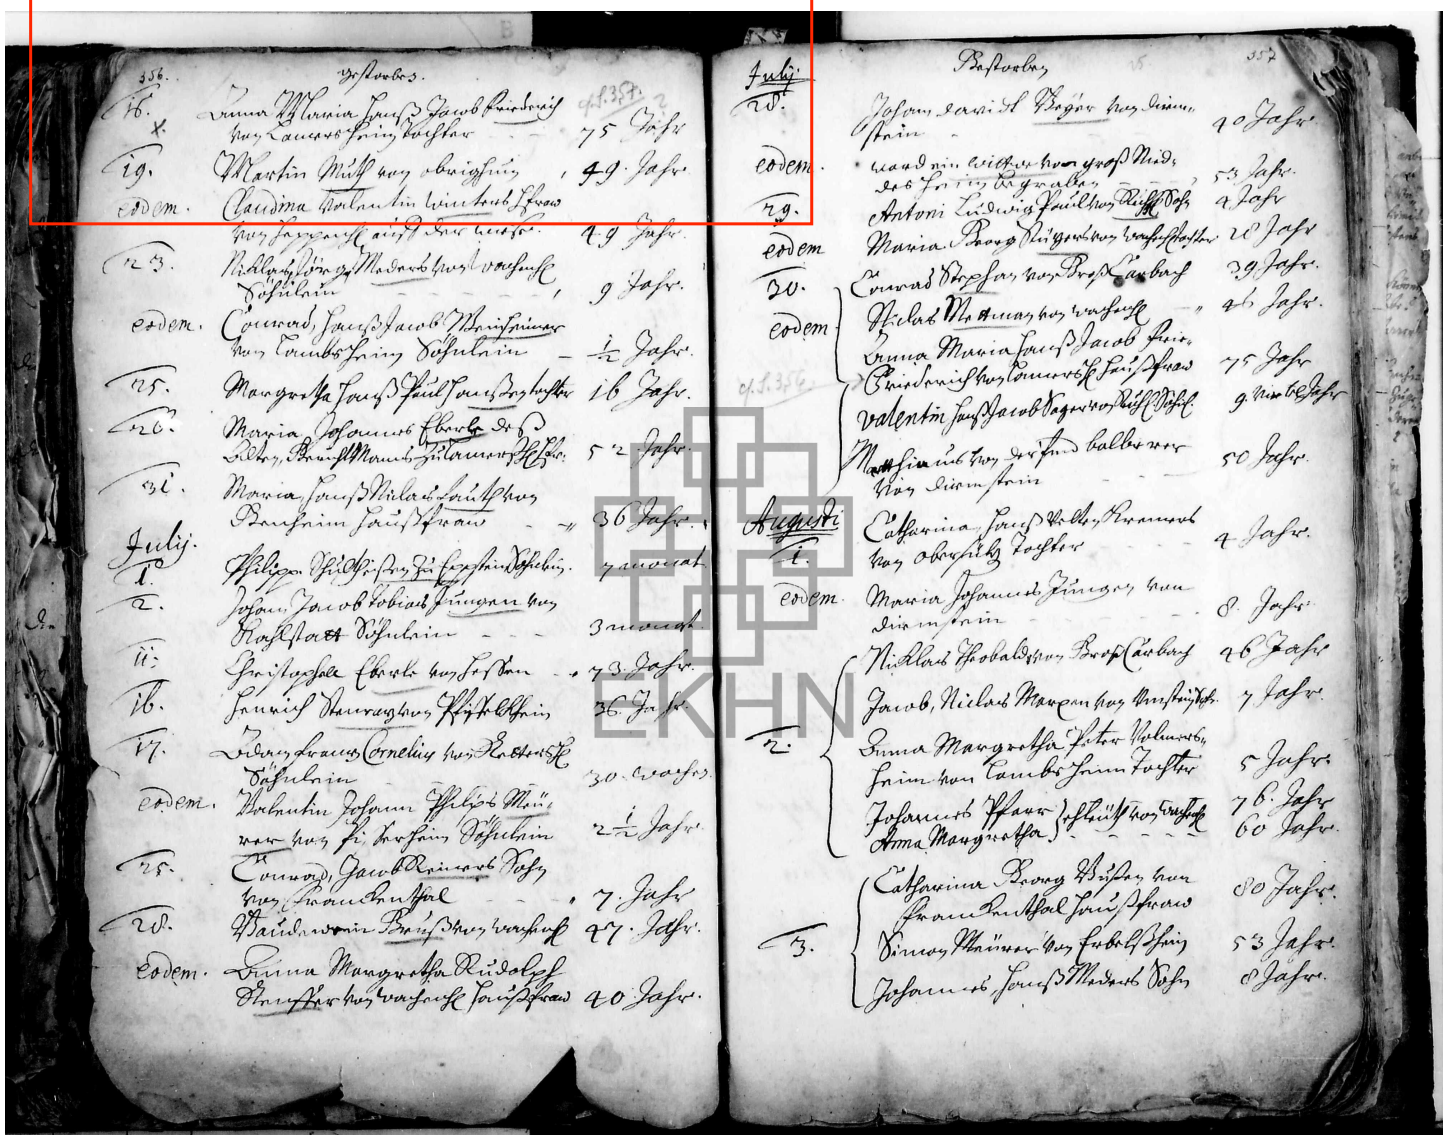 356.
gestorben.
16. Anna Maria Hanß Jacob Friederich
von Lamersheim tochter - - 75 Jahr
cf. S. 357.
19. Martin Muth von obrigheim, 49. Jahr.
eodem. Claudina Valentin Winters Hfraw
von Heppenh. auß der wiese. 49 Jahr.
23. Niklas, Jörg Meders von wachenh.
Söhnlein - - - 9 Jahr.
eodem. Conrad, Hanß Jacob Weinheimer
von Lambsheim Söhnlein - 1/2 Jahr.
25. Margretha Hanß Paul tochter 16 Jahr.
26. Maria, Johannes Eberle deß
Alten, Gerichts Manns zu Lamersh. Hfr. 52 Jahr.
31. Maria, Hanß Niclas Lauth von
Benheim Haußfraw - - 36 Jahr.
Julij.
1. Philips Schultheißen zu Eppstein Söhnlein. 7 monat
2. Johan Jacob Tobias Jungen von
Kahlstatt Söhnlein - - - 3 monat.
11. Christophel Eberle von Hessen - 73. Jahr.
16. Henrich von Pfiffelkheim 36. Jahr.
17. Adam Frantz Cornelius von
Söhnlein 30. wochen.
eodem. Valentin Johann Philips Meü-
rer von Söhnlein 2 1/2 Jahr.
25. Conrad, Jacob Reiners Sohn
von Franckenthal 7. Jahr
28. von wachenh. 47. Jahr.
eodem. Anna Margretha Rudolph
von wachenh. Haußfraw 40 Jahr.
357
Gestorben
July.
28. Johan David Beyer von Dirm-
stein - 40 Jahr.
eodem. ward ein wittwe von groß Nied-
desheim begraben - - 53 Jahr.
29. Antoni Ludwig Paul von Sohn 4 Jahr
eodem Maria Georg von wachenh. tochter 28 Jahr
30. Conrad Stephan von Groß Carbach 39 Jahr.
eodem Niclas Mettman von wachenh. - " 46 Jahr.
Anna Maria Hanß Jacob Frie-
Friederich von Lamersh. haußfraw 75 Jahr
cf. S. 356.
Valentin Hanß Jacob Sohn. 9. viertel Jahr
Matthiaus von der balbierer
von Dirmstein 50 Jahr.
Augusti
1. Catharina, Hanß Velten Kremers
von obersültz Tochter - - - 4 Jahr.
eodem. Maria Johannes Jungen von
Dirmstein - - - 8. Jahr
Nicklas Theobald von Groß Carbach 46 Jahr
Jacob, Niclas Marxen von 7 Jahr.
2. Anna Margretha Peter Volmers-
heim von Lambsheim Tochter 5 Jahr.
Johannes Pfarr } Eheleüth von wachenh. 76. Jahr
Anna Margretha } - - - 60 Jahr.
Catharina Georg von
Franckenthal Haußfraw 80 Jahr.
3. Simon Meürer von Erbelßheim 53 Jahr.
Johannes, Hanß Meders Sohn 8 Jahr.
EKHN